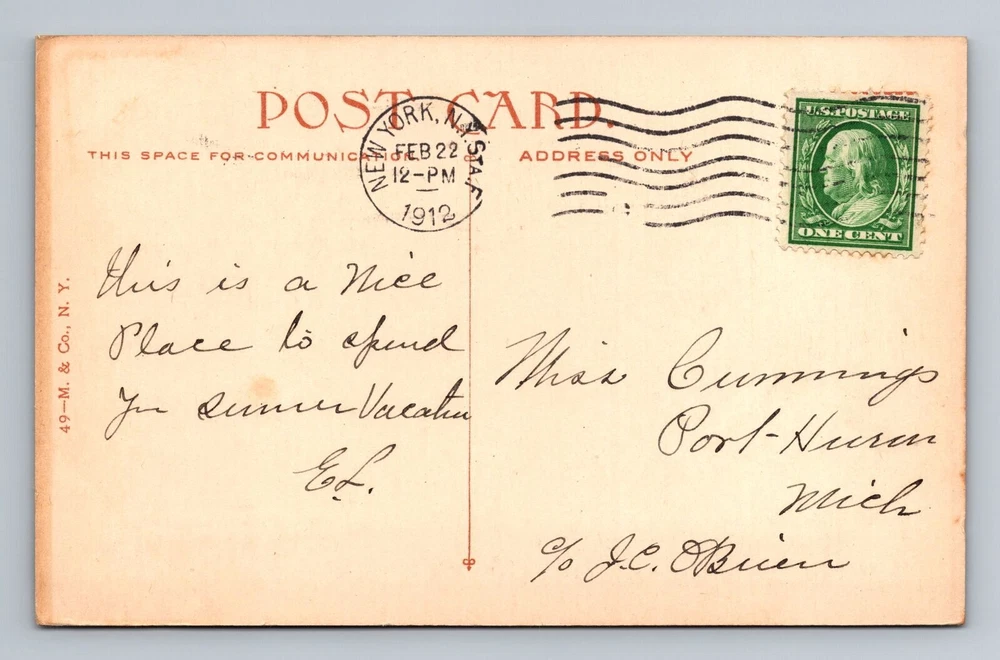 POST CARD.
THIS SPACE FOR COMMUNICATION
ADDRESS ONLY
NEW YORK, N.Y. STA. F
FEB 22
12-PM
1912
U.S. POSTAGE
ONE CENT
this is a Nice
Place to spend
Yr sumer Vacation
EL.
Miss Cummings
Port-Huron
Mich
c/o J.C. OBrien
49—M. & Co., N. Y.